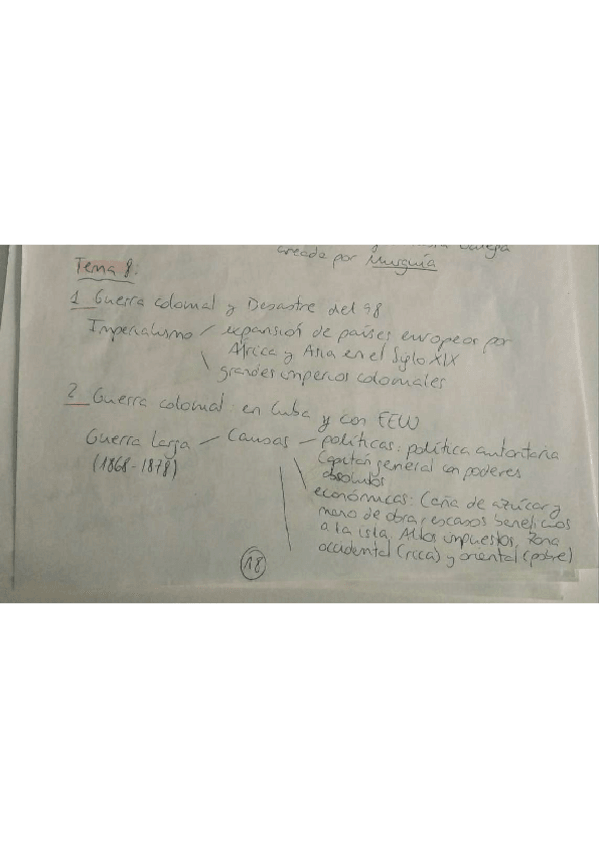 creada por Murguía
Tema 8:
1 Guerra colonial y Desastre del 98
Imperialismo / expansión de países europeos por
África y Asia en el Siglo XIX
\ grandes imperios coloniales
2 Guerra colonial en Cuba y con EEUU
Guerra Larga / Causas - políticas: política autoritaria
(1868-1878)
Capitán general con poderes
absolutos
económicas: Caña de azúcar y
mano de obra, escasos beneficios
a la isla. Altos impuestos, zona
occidental (rica) y oriental (pobre)
18